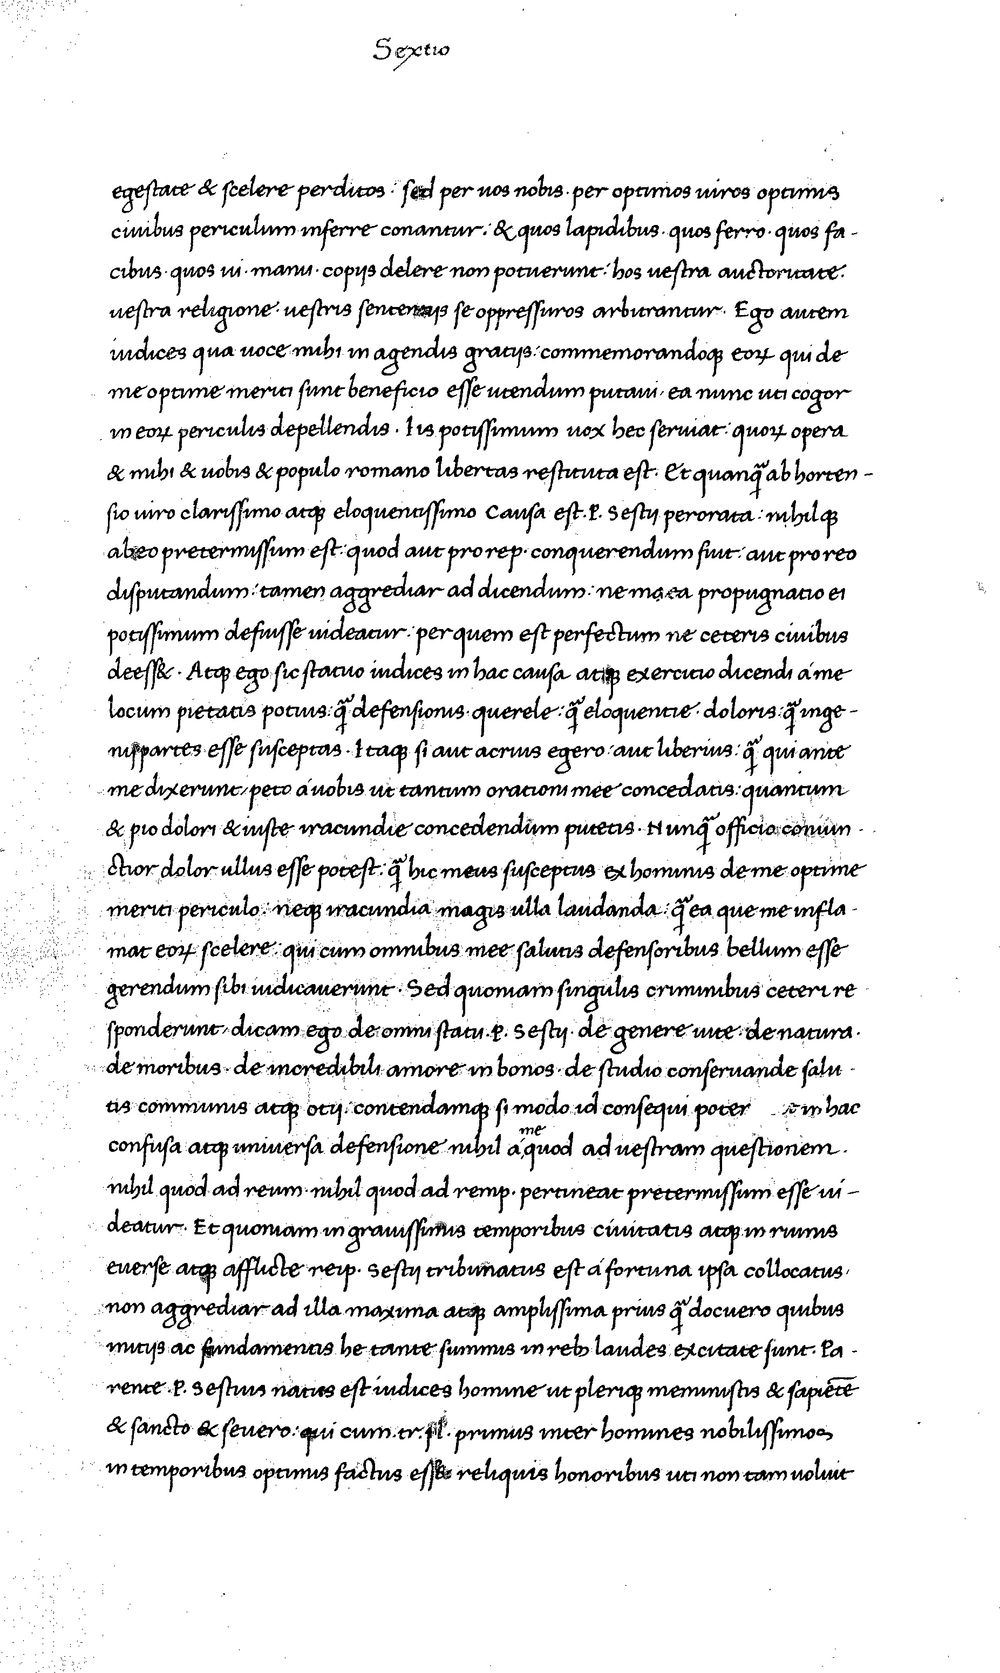 Sextio
egestate & scelere perditos : sed per uos nobis · per optimos uiros optimis
ciuibus periculum inferre conantur : & quos lapidibus · quos ferro · quos fa-
cibus · quos ui · manu · copijs delere non potuerunt : hos uestra auctoritate :
uestra religione · uestris sententijs se oppressuros arbitrantur · Ego autem
iudices qua uoce mihi in agendis gratijs : commemorandoqꝫ eoꝝ qui de
me optime meriti sunt beneficio esse utendum putaui · ea nunc uti cogor
in eoꝝ periculis depellendis · Iis potissimum uox hec seruiat : quoꝝ opera
& mihi & uobis & populo romano libertas restituta est · Et quanq̃ ab horten-
sio uiro clarissimo atqꝫ eloquentissimo causa est · P · Sestij perorata : nihilqꝫ
ab eo pretermissum est : quod aut pro rep · conquerendum fuit : aut pro reo
disputandum : tamen aggrediar ad dicendum : ne mea propugnatio ei
potissimum defuisse uideatur : per quem est perfectum ne ceteris ciuibus
deess& · Atqꝫ ego sic statuo iudices in hac causa atqꝫ exercitio dicendi á me
locum pietatis potius : q̃ defensionis · querele : q̃ eloquentie · doloris : q̃ inge-
nij partes esse susceptas · Itaqꝫ si aut acrius egero : aut liberius : q̃ qui ante
me dixerunt, peto á uobis ut tantum orationi mee concedatis : quantum
& pio dolori & iuste iracundie concedendum putetis · Nunq̃ officio coniun-
ctior dolor ullus esse potest : q̃ hic meus susceptus ex hominis de me optime
meriti periculo : neqꝫ iracundia magis ulla laudanda : q̃ ea que me infla-
mat eoꝝ scelere : qui cum omnibus mee salutis defensoribus bellum esse
gerendum sibi iudicauerunt · Sed quoniam singulis criminibus ceteri re
sponderunt, dicam ego de omni statu · P · Sestij · de genere uite · de natura ·
de moribus · de incredibili amore in bonos · de studio conseruande salu-
tis communis atqꝫ otij : contendamqꝫ si modo id consequi poter in hac
confusa atqꝫ uniuersa defensione nihil á me quod ad uestram questionem ·
nihil quod ad reum · nihil quod ad remp · pertineat pretermissum esse ui-
deatur · Et quoniam in grauissimis temporibus ciuitatis atqꝫ in ruinis
euerse atqꝫ afflicte reip · Sestij tribunatus est á fortuna ipsa collocatus ·
non aggrediar ad illa maxima atqꝫ amplissima prius q̃ docuero quibus
initijs ac fundamentis he tante summis in rebꝫ laudes excitate sunt · Pa-
rente · P · Sestius natus est iudices homine ut pleriqꝫ meministis & sapiẽtẽ
& sancto & seuero : qui cum · tr · pl · primus inter homines nobilissimos
in temporibus optimis factus ess& reliquis honoribus uti non tam uoluit